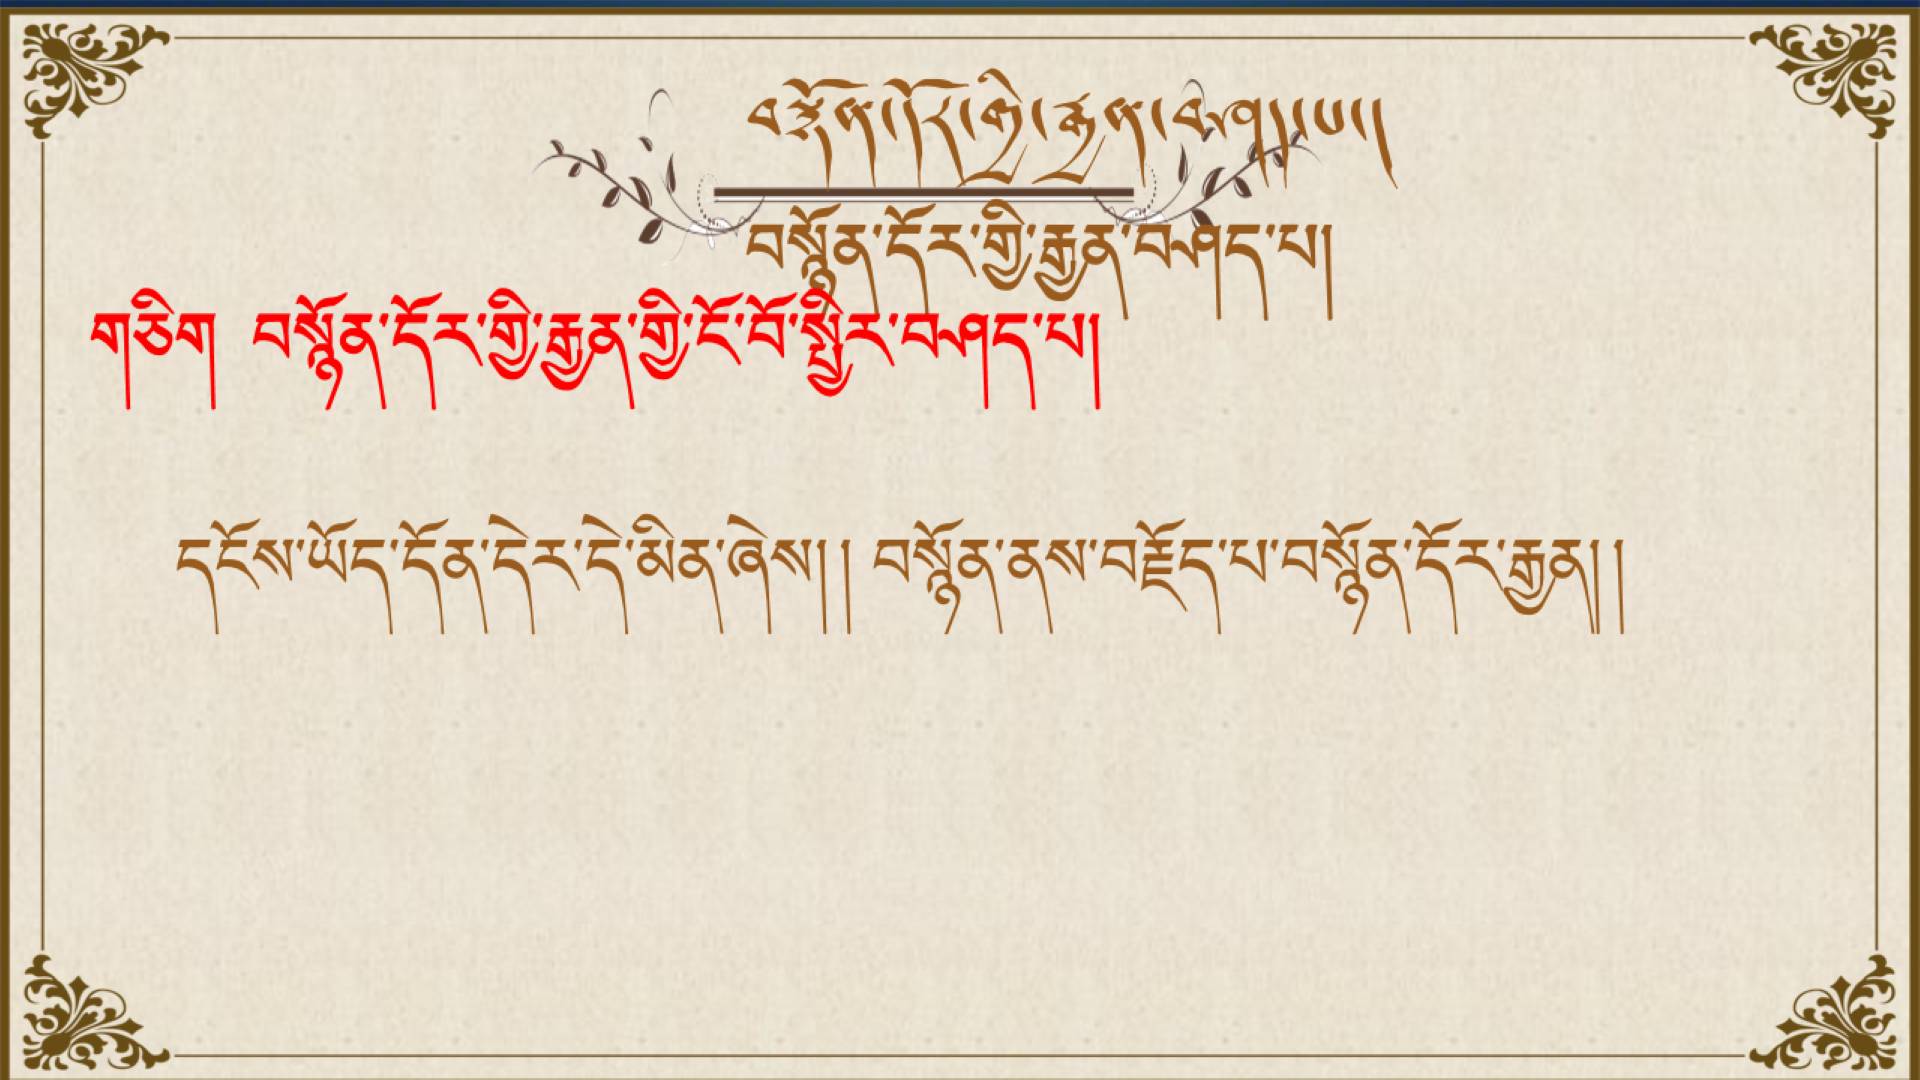 བསྙོན་དོར་གྱི་རྒྱན་བཤད་པ།
བསྙོན་དོར་གྱི་རྒྱན་བཤད་པ།
གཅིག བསྙོན་དོར་གྱི་རྒྱན་གྱི་ངོ་བོ་སྤྱིར་བཤད་པ།
དངོས་ཡོད་དོན་དེར་དེ་མིན་ཞེས།། བསྙོན་ནས་བརྗོད་པ་བསྙོན་དོར་རྒྱན།།